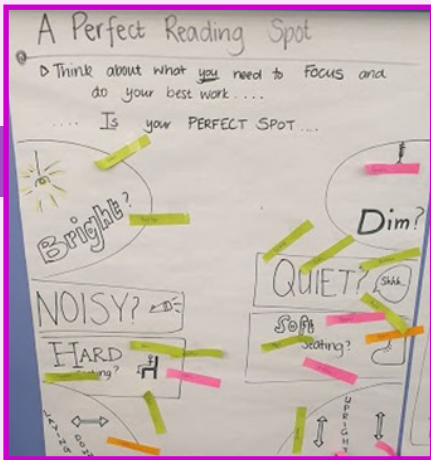 A Perfect Reading Spot
Think about what you need to Focus and
do your best work....
.... Is your PERFECT SPOT....
Bright?
Dim?
QUIET?
Shhh..
NOISY?
Soft
Seating?
HARD
LAYING DOWN
UPRIGHT